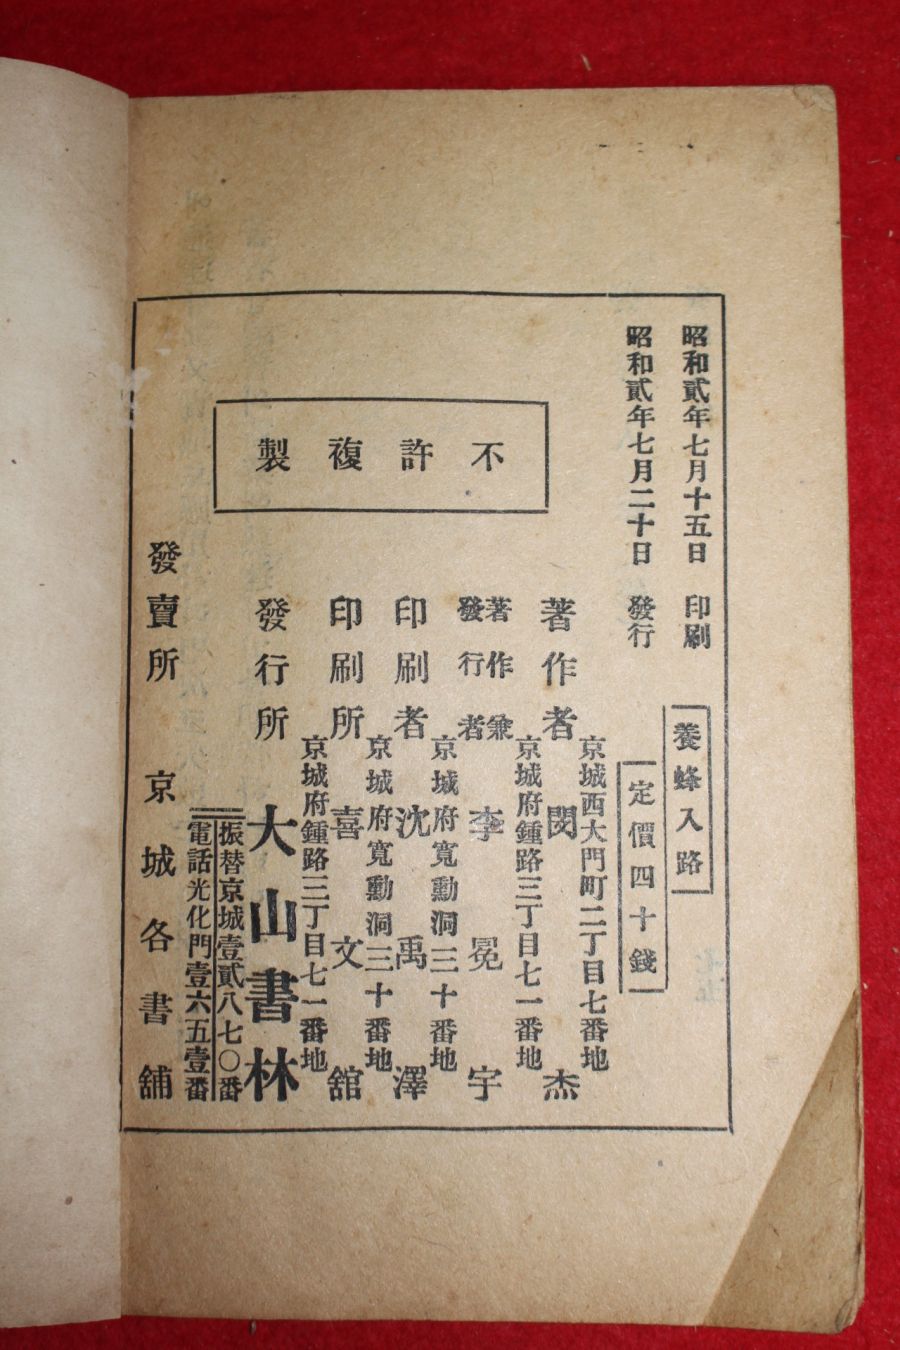 昭和貳年七月十五日 印刷
昭和貳年七月二十日 發行
養蜂入路
定價四十錢
不許複製
京城西大門町二丁目七番地
著作者 閔杰
京城府鍾路三丁目七一番地
著作兼
發行者 李冕宇
京城府寬勳洞三十番地
印刷者 沈禹澤
京城府寬勳洞三十番地
印刷所 喜文舘
京城府鍾路三丁目七一番地
發行所 大山書林
振替京城壹貳八七〇番
電話光化門壹六五壹番
發賣所 京城各書舖